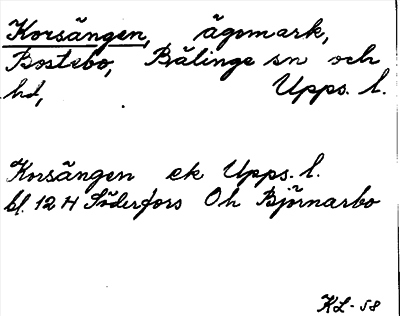 Korsängen, ägomark,
Bostebo, Bälinge sn och
hd, Upps. l.
Korsängen ek Upps. l.
bl. 12 H Söderfors Oh Björnarbo
KL-58